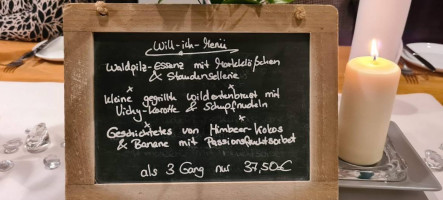 Will-ich-Menü
Waldpilz-Essenz mit Markklößchen
& Staudensellerie
x
Kleine gegrillte Wildentenbrust mit
Vichy-Karotte & Schupfnudeln
x x
Geschichtetes von Himbeer-Kokos
& Banane mit Passionsfruchtsorbet
als 3 Gang nur 37,50€